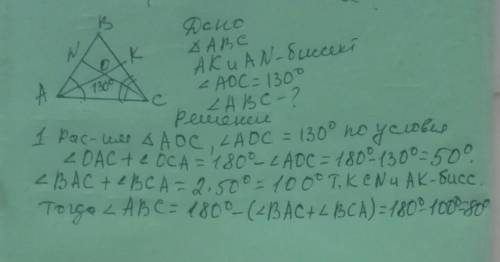 B
Дано
N K
∡ABC
O
AK и AN-биссект
A 130° C
∠AOC=130°
∠ABC-?
Решение
1 Рас-им ∡AOC, ∠AOC=130° по условия
∠OAC+∠OCA=180°-∠AOC=180°-130°=50°.
∠BAC+∠BCA=2.50°=100° Т.К CN и AK-бисс.
Тогда ∠ABC=180°-(∠BAC+∠BCA)=180°-100°=80°